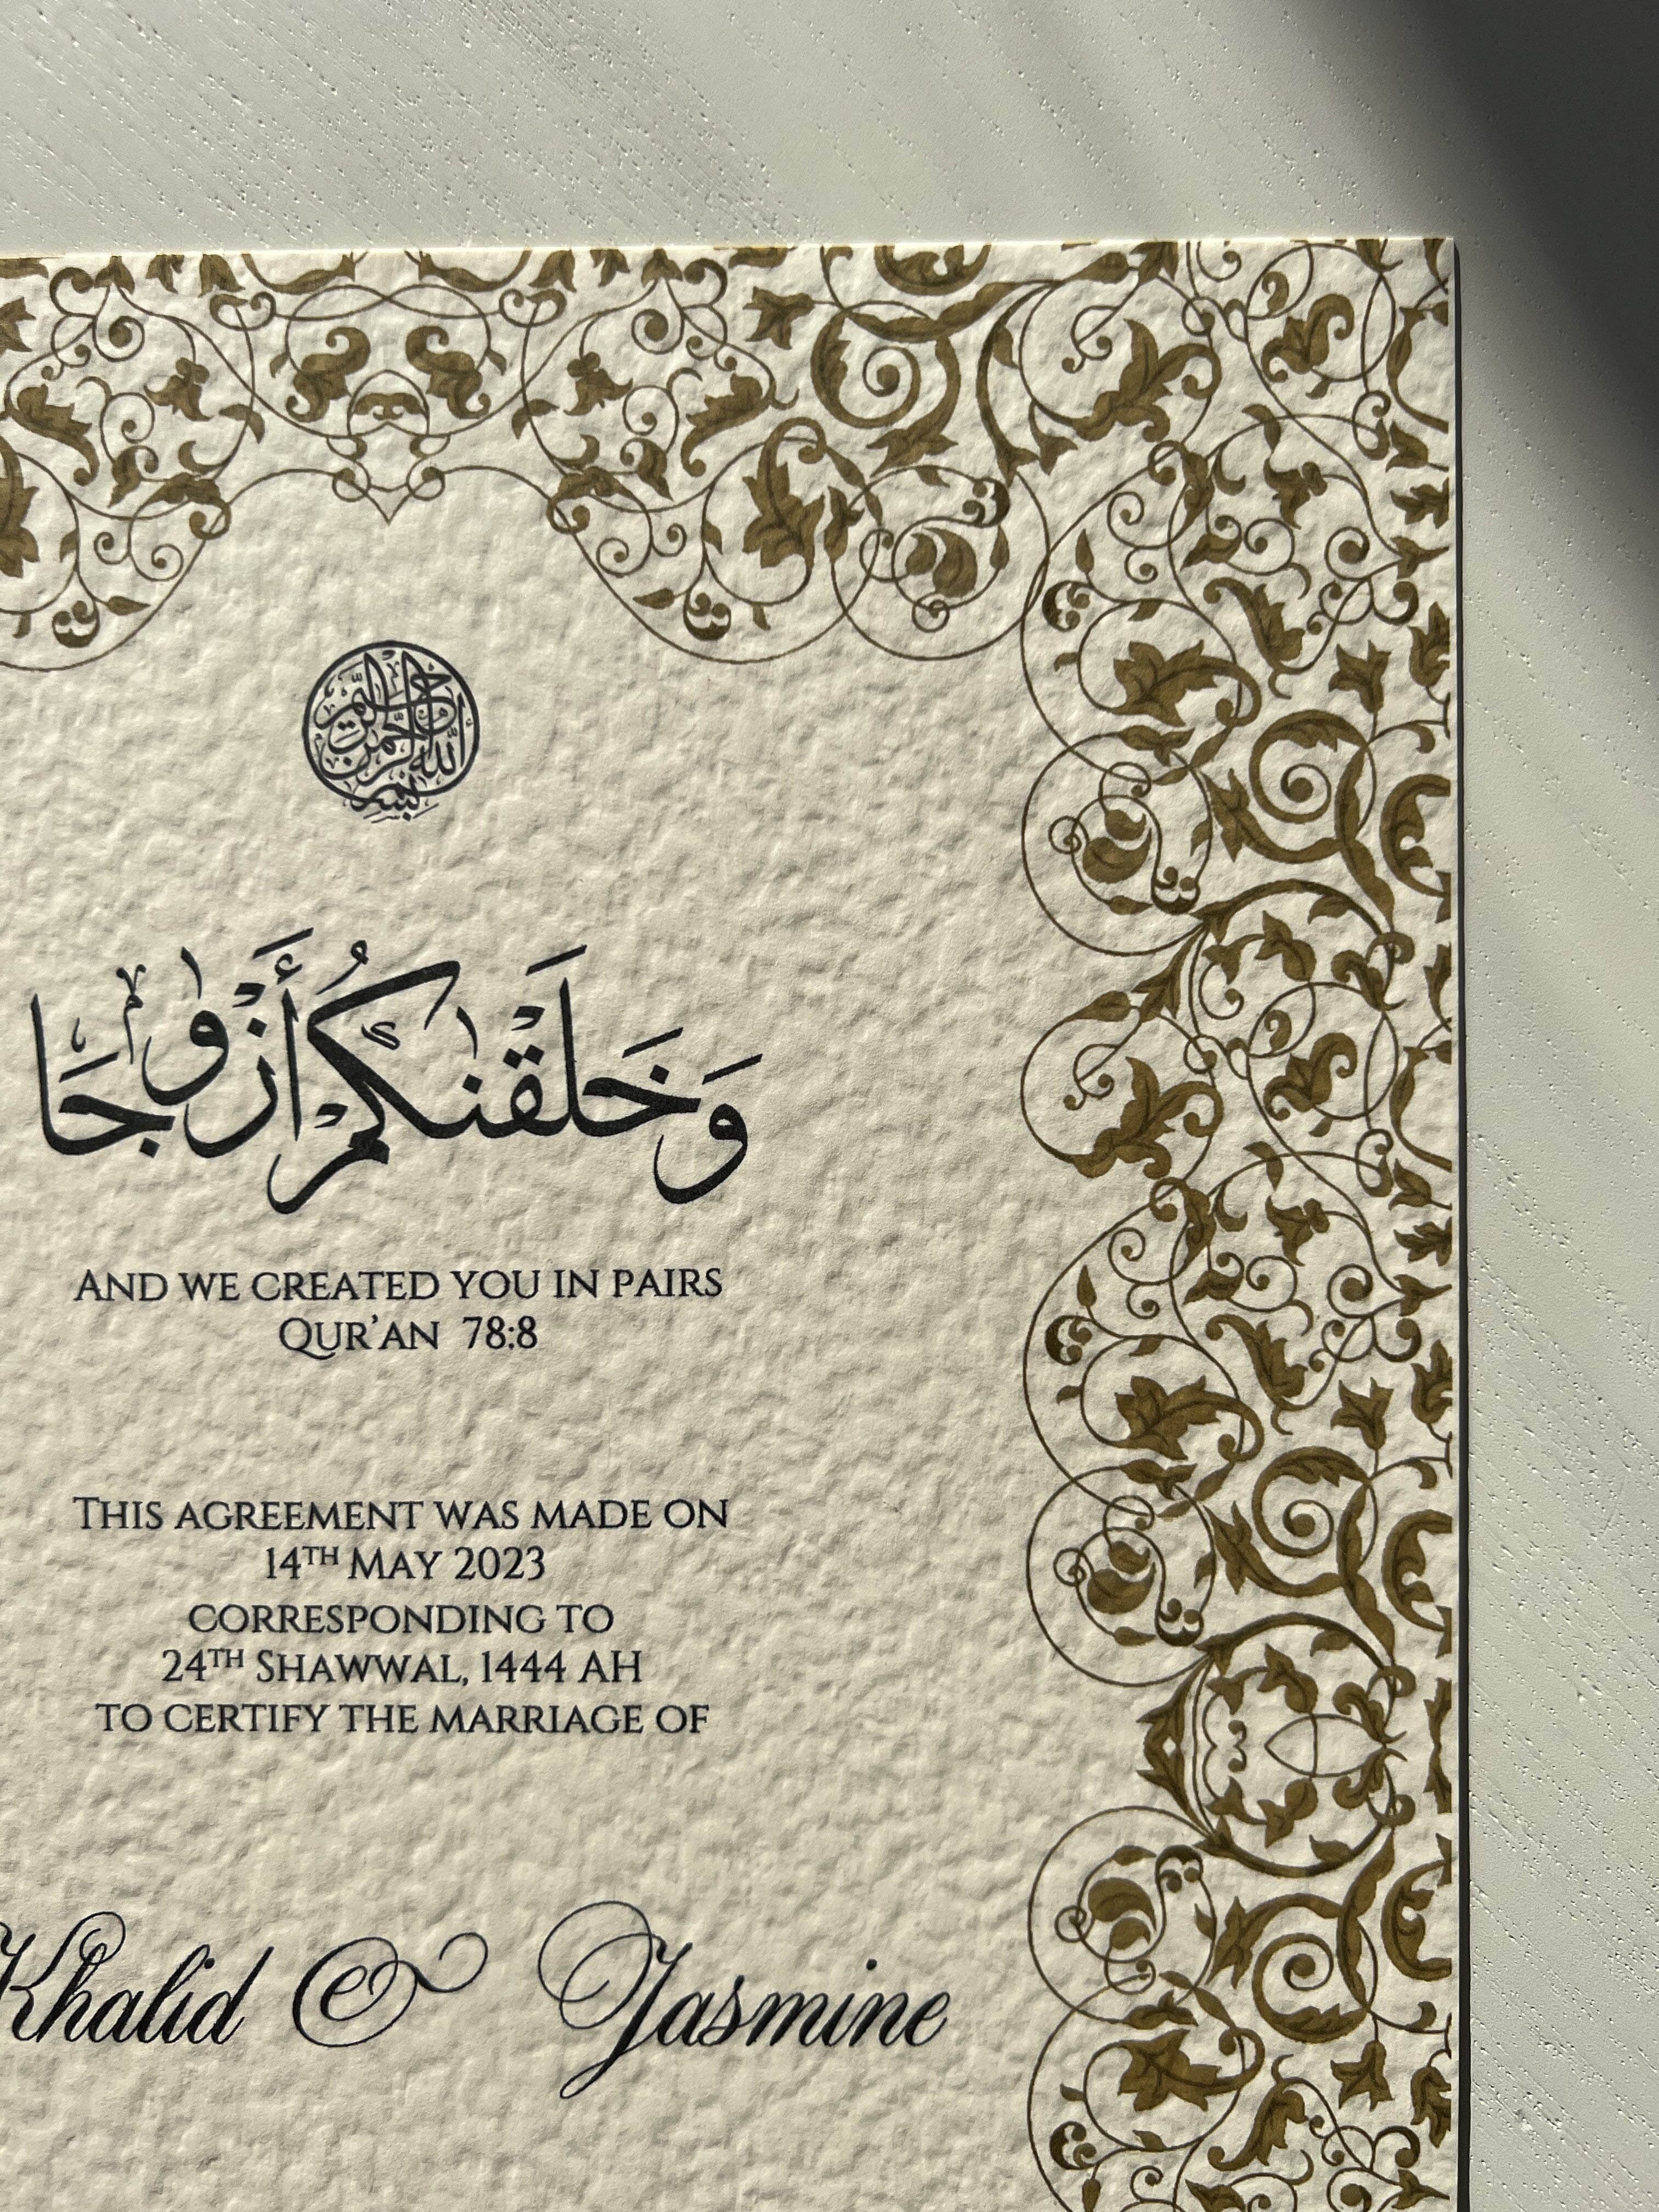 بسم الله الرحمن الرحيم
وَخَلَقْنَٰكُمْ أَزْوَٰجًا
AND WE CREATED YOU IN PAIRS
QUR’AN 78:8
THIS AGREEMENT WAS MADE ON
14TH MAY 2023
CORRESPONDING TO
24TH SHAWWAL, 1444 AH
TO CERTIFY THE MARRIAGE OF
Khalid & Jasmine